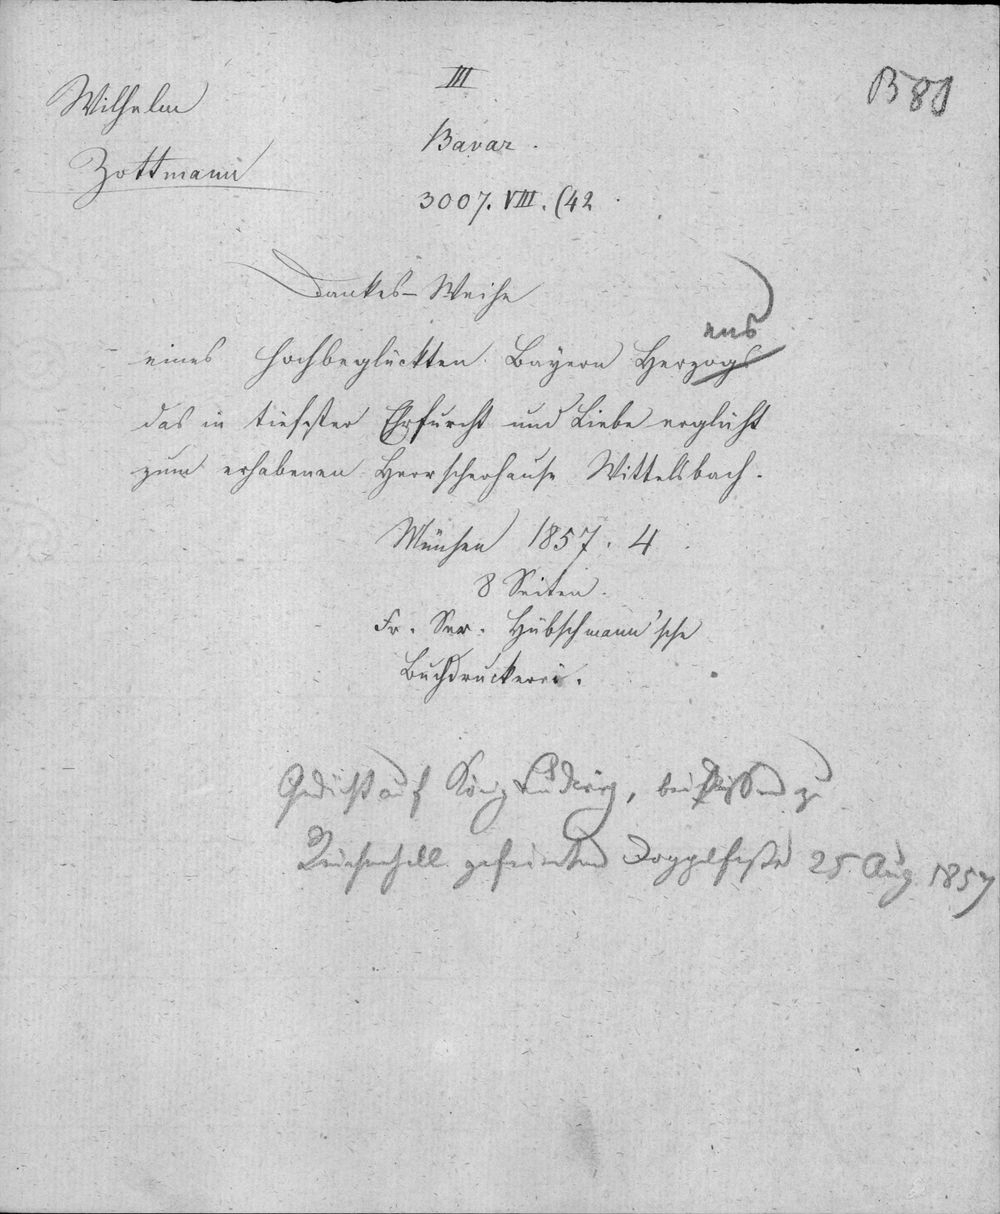 III
B 81
Wilhelm
Zottmann
Bavar.
3007. VIII. (42
Dankes-Weihe
ens
eines hochbeglückten Bayern Herzogs
das in tiefster Ehrfurcht und Liebe erglüht
zum erhabenen Herrscherhause Wittelsbach.
München 1857. 4
8 Seiten.
Fr. Ser. Hübschmann'sche
Buchdruckerei.
Gedicht auf König Ludwig, bei zu
Reichenhall gefeierten Doppelfeste 25 Aug 1857